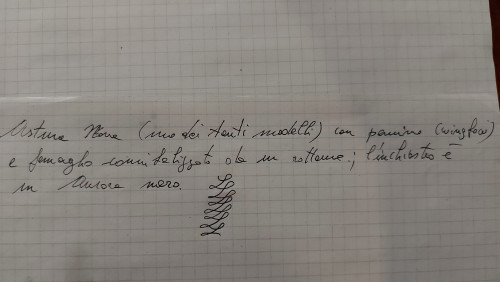 Astura Nova (uno dei tanti modelli) con pennino (wingflow)
e fermaglio cannibalizzato da un rottame; l'inchiostro è
un Aurora nero.